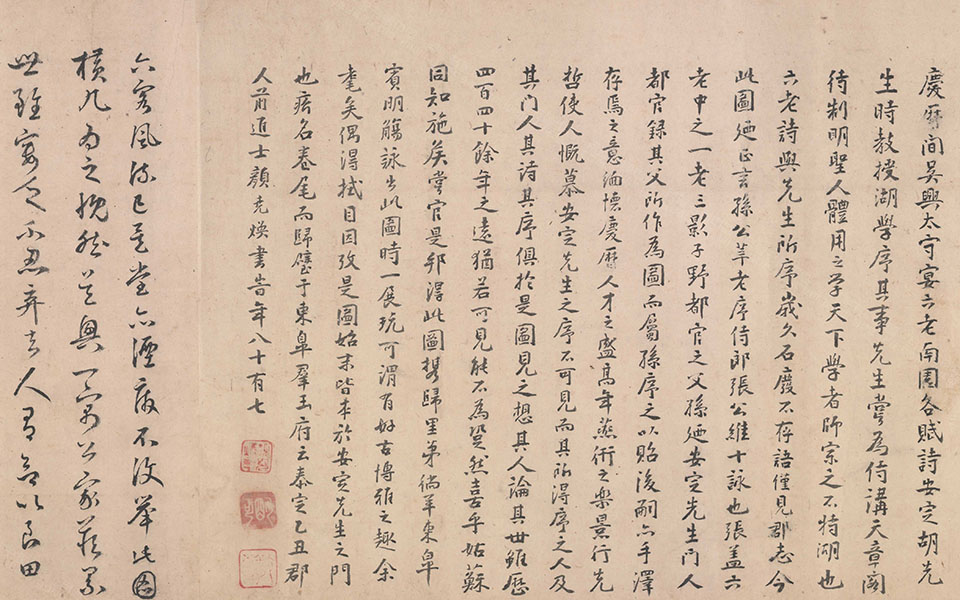 慶曆間吳興太守宴六老南園各賦詩安定胡先
生時教授湖學序其事先生嘗為侍講天章閣
待制明聖人體用之學天下學者師宗之不特湖也
六老詩與先生所序歲久石廢不存語僅見郡志今
此圖廼正言孫公莘老序侍郎張公維十詠也張盖六
老中之一老三影子野都官之父孫廼安定先生門人
都官録其父所作為圖而屬孫序之以貽後嗣亦手澤
存焉之意緬懷慶曆人才之盛高年燕衎之樂景行先
哲使人慨慕安定先生之序不可見而其所得序之人及
其門人其詩其序俱於是圖見之想其人論其世雖歷
四百四十餘年之遠猶若可見能不為跫然喜乎姑蘇
同知施矦嘗官是邦得此圖携歸里第徜羊東皐
賓明觴詠出此圖時一展玩可謂有好古博雅之趣余
耄矣偶得拭目因攷是圖始末皆本於安定先生之門
也痦名卷尾而歸璧于東皐羣玉府云泰定乙丑郡
人前進士顏堯煥書旹年八十有七
六客風流已 堂亦湮廢不汶舉此圖
橫几為之 然 與 公家
世雖 不忍弃去人 以良田